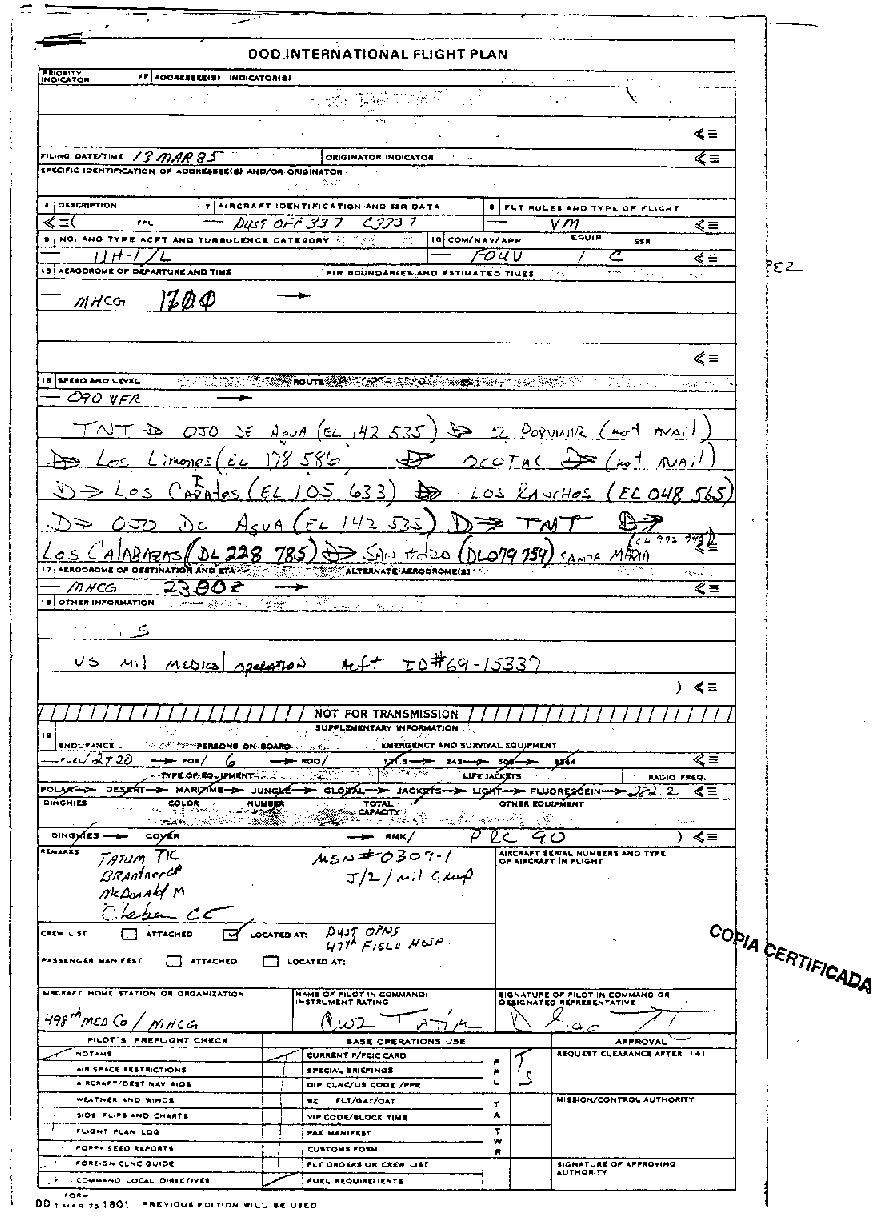 DOD INTERNATIONAL FLIGHT PLAN
PRIORITY INDICATOR FF ADDRESSEE(S) INDICATOR(S)
<≡
FILING DATE/TIME 13 MAR 85 ORIGINATOR INDICATOR <≡
SPECIFIC IDENTIFICATION OF ADDRESSEE(S) AND/OR ORIGINATOR
DESCRIPTION 7 AIRCRAFT IDENTIFICATION AND SIR DATA 8 FLT RULES AND TYPE OF FLIGHT
<≡( — DUST OFF 337 — VM <≡
9 NO. AND TYPE ACFT AND TURBULENCE CATEGORY 10 COM/NAV/APP EQUIP SSR
— UH-1/L — FOUV / C <≡
13 AERODROME OF DEPARTURE AND TIME FIR BOUNDARIES AND ESTIMATED TIMES
— MHCG 1700 →
<≡
15 SPEED AND LEVEL ROUTE
— 090 VFR →
TNT D→ OJO DE AGUA (EL 142 535) D→ (not AVAIL)
D→ Los Limones (EL 178 586 D→ OCOTAL D→ (not AVAIL)
D→ LOS (EL 105 633) D→ LOS RANCHOS (EL 048 565)
D→ OJO DE AGUA (EL 142 535) D→ TNT D→
LOS CALABAZAS (DL 228 785) D→ SAN (DL 079 759) SANTA MARIA <≡
17 AERODROME OF DESTINATION AND ETA ALTERNATE AERODROME(S)
— MHCG 2300Z → <≡
18 OTHER INFORMATION
US Mil MEDICAL OPERATION Acft ID#69-15337
) <≡
NOT FOR TRANSMISSION
SUPPLEMENTARY INFORMATION
19 ENDURANCE PERSONS ON BOARD EMERGENCY AND SURVIVAL EQUIPMENT
— FUEL/ 2+20 → POB/ 6 → RDO/ 121.5 → 243 → 500 → 8364 <≡
TYPE OF EQUIPMENT LIFE JACKETS RADIO FREQ.
POLAR → DESERT → MARITIME → JUNGLE → GLOBAL → JACKETS → LIGHT → FLUORESCEIN → 282.2 <≡
DINGHIES COLOR NUMBER TOTAL CAPACITY OTHER EQUIPMENT
DINGHIES → COVER → RMK/ PRC 90 ) <≡
REMARKS TATUM PIC MSN#0309-1 AIRCRAFT SERIAL NUMBERS AND TYPE OF AIRCRAFT IN FLIGHT
J/2/Mil Group
McDonald M
CE
CREW LIST ATTACHED LOCATED AT: DUST OPNS
47th FIELD HOSP
PASSENGER MANIFEST ATTACHED LOCATED AT:
AIRCRAFT HOME STATION OR ORGANIZATION NAME OF PILOT IN COMMAND/ INSTRUMENT RATING SIGNATURE OF PILOT IN COMMAND OR DESIGNATED REPRESENTATIVE
498th MED CO / MHCG CW2 TATUM
PILOT'S PREFLIGHT CHECK BASE OPERATIONS USE APPROVAL
NOTAMS CURRENT P/FCIC CARD REQUEST CLEARANCE AFTER (4)
AIR SPACE RESTRICTIONS SPECIAL BRIEFINGS
AIRCRAFT/DEST NAV AIDS DIP CLNC/US CODE/PPR
WEATHER AND WINDS FLT/GAT/OAT MISSION/CONTROL AUTHORITY
SIDS FLIPS AND CHARTS VIP CODE/BLOCK TIME
FLIGHT PLAN LOG PAX MANIFEST
POPPY SEED REPORTS CUSTOMS FORM
FOREIGN CLNC GUIDE FLT ORDERS OR CREW LIST SIGNATURE OF APPROVING AUTHORITY
COMMAND LOCAL DIRECTIVES FUEL REQUIREMENTS
DD FORM 1 MAR 75 1801 PREVIOUS EDITION WILL BE USED
COPIA CERTIFICADA